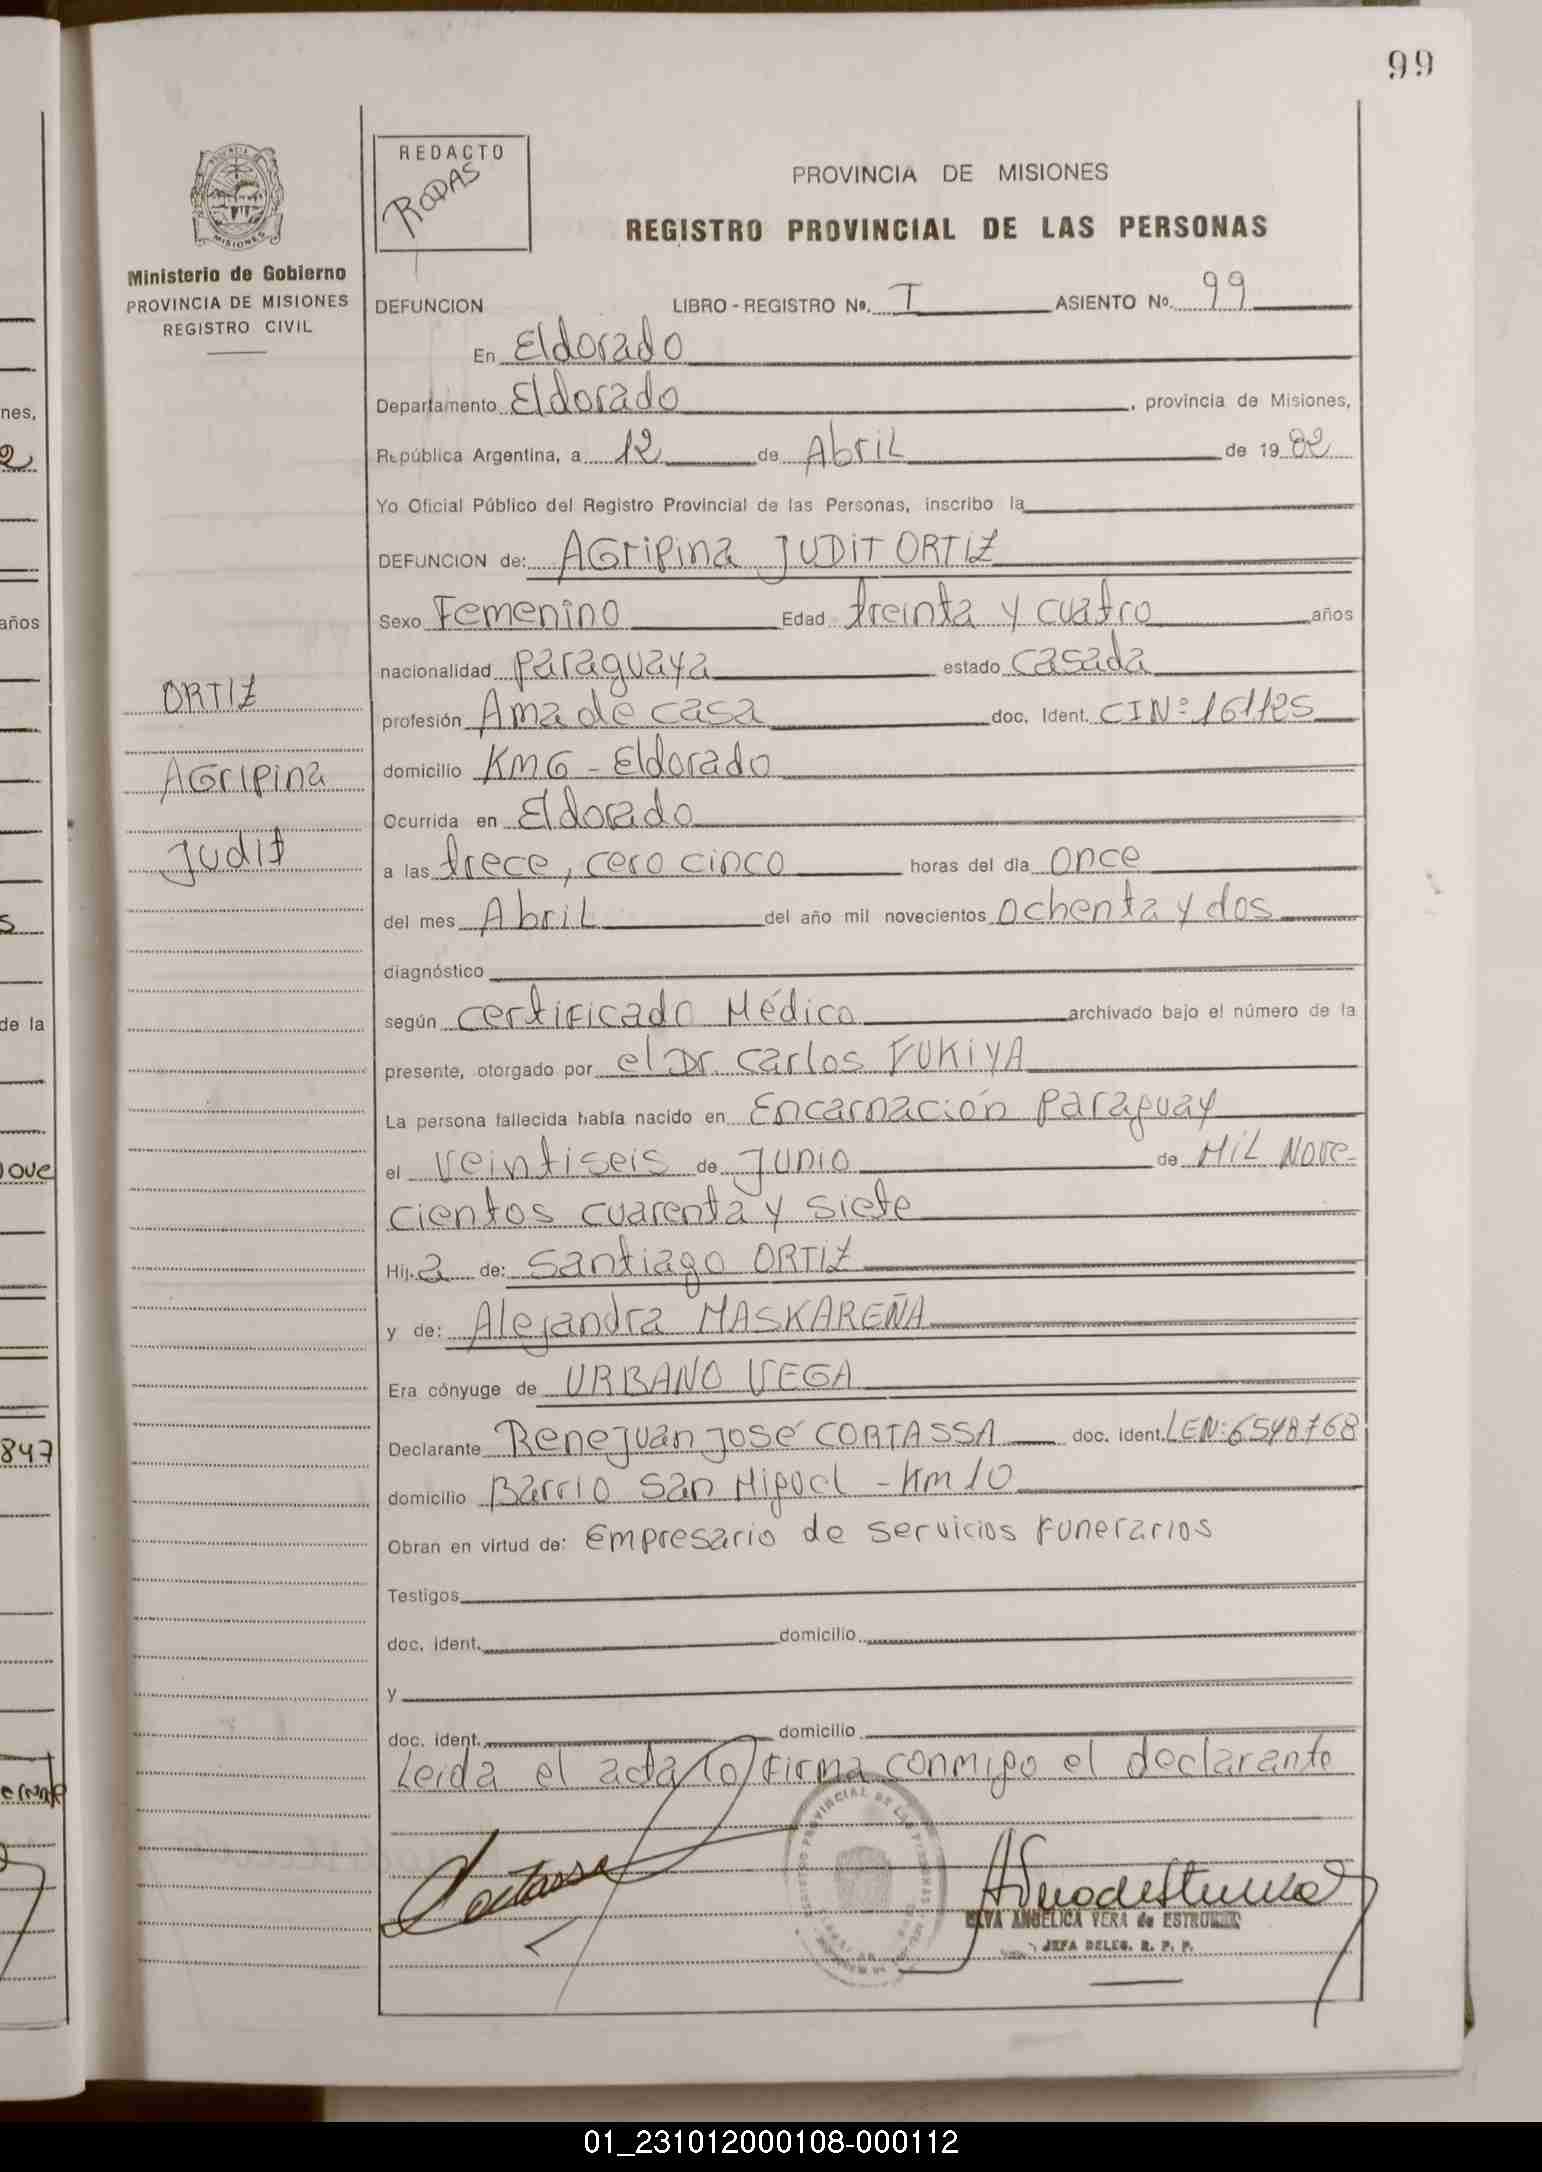 99
nes,
2
años
s
de la
ove
847
PROVINCIA DE MISIONES
Ministerio de Gobierno
PROVINCIA DE MISIONES
REGISTRO CIVIL
ORTIZ
AGripina
Judit
REDACTO
RODAS
PROVINCIA DE MISIONES
REGISTRO PROVINCIAL DE LAS PERSONAS
DEFUNCION LIBRO - REGISTRO Nº. I ASIENTO Nº. 99
En Eldorado
Departamento Eldorado, provincia de Misiones,
República Argentina, a 12 de Abril de 1982
Yo Oficial Público del Registro Provincial de las Personas, inscribo la
DEFUNCION de: AGripina JUDIT ORTIZ
Sexo Femenino Edad treinta y cuatro años
nacionalidad paraguaya estado casada
profesión Ama de casa doc. Ident. CI Nº 161125
domicilio KM6 - Eldorado
Ocurrida en Eldorado
a las trece, cero cinco horas del día once
del mes Abril del año mil novecientos ochenta y dos
diagnóstico
según certificado Médico archivado bajo el número de la
presente, otorgado por el Dr. Carlos FUKIYA
La persona fallecida había nacido en Encarnación Paraguay
el veintiseis de Junio de Mil Nove-
cientos cuarenta y siete
Hij.a de: Santiago ORTIZ
y de: Alejandra MASKAREÑA
Era cónyuge de URBANO VEGA
Declarante Rene Juan José CORTASSA doc. ident. LEN: 6548768
domicilio Barrio San Miguel - Km 10
Obran en virtud de: Empresario de servicios Funerarios
Testigos
doc. ident. domicilio
y
doc. ident. domicilio
Leida el acta lo firma conmigo el declarante
Cortassa
REGISTRO PROVINCIAL DE LAS PERSONAS
ELVA ANGELICA VERA de ESTRU
JEFA DELEG. R. P. P.
01_231012000108-000112